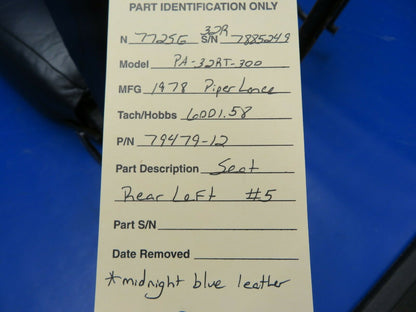 PART IDENTIFICATION ONLY
N 7725G S/N 32R-7885249
Model PA-32RT-300
MFG 1978 Piper Lance
Tach/Hobbs 6001.58
P/N 79479-12
Part Description Seat
Rear Left #5
Part S/N
Date Removed
*midnight blue leather